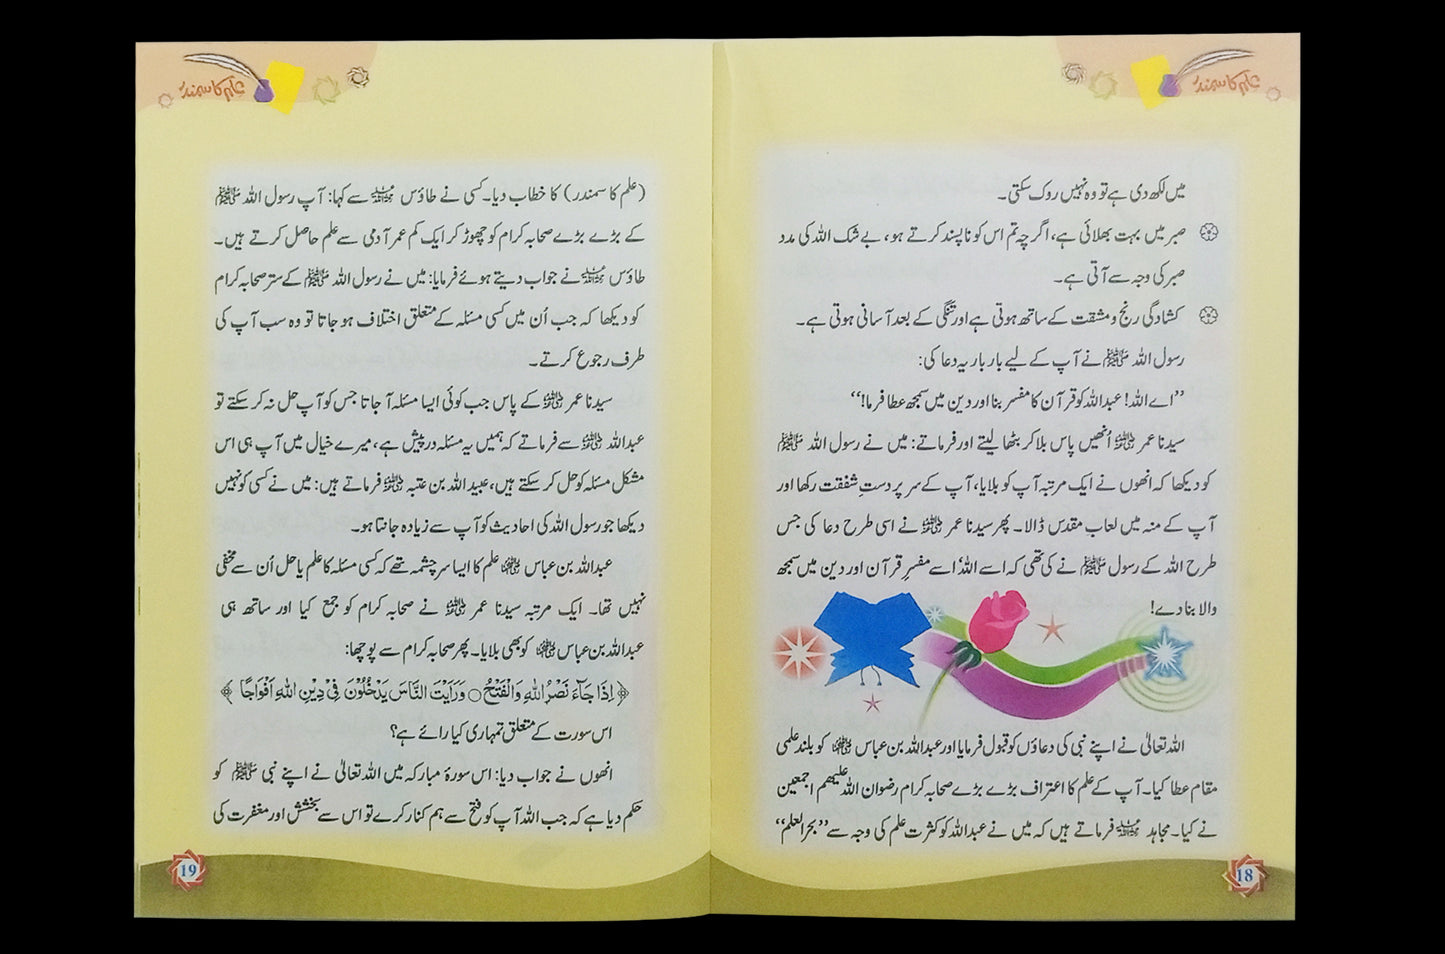 علم کا سمندر
میں لکھ دی ہے تو وہ نہیں روک سکتی۔
صبر میں بہت بھلائی ہے، اگر چہ تم اس کو ناپسند کرتے ہو، بے شک اللہ کی مدد
صبر کی وجہ سے آتی ہے۔
کشادگی رنج و مشقت کے ساتھ ہوتی ہے اور تنگی کے بعد آسانی ہوتی ہے۔
رسول اللہ ﷺ نے آپ کے لیے بار بار یہ دعا کی:
’’اے اللہ! عبداللہ کو قرآن کا مفسر بنا اور دین میں سمجھ عطا فرما!‘‘
سیدنا عمر رضی اللہ عنہ اُنھیں پاس بلا کر بٹھا لیتے اور فرماتے: میں نے رسول اللہ ﷺ
کو دیکھا کہ انھوں نے ایک مرتبہ آپ کو بلایا، آپ کے سر پر دستِ شفقت رکھا اور
آپ کے منہ میں لعاب مقدس ڈالا۔ پھر سیدنا عمر رضی اللہ عنہ نے اسی طرح دعا کی جس
طرح اللہ کے رسول ﷺ نے کی تھی کہ اے اللہ! اسے مفسرِ قرآن اور دین میں سمجھ
والا بنا دے!
اللہ تعالیٰ نے اپنے نبی کی دعاؤں کو قبول فرمایا اور عبداللہ بن عباس رضی اللہ عنہما کو بلند علمی
مقام عطا کیا۔ آپ کے علم کا اعتراف بڑے بڑے صحابہ کرام رضوان اللہ علیھم اجمعین
نے کیا۔ مجاہد رحمہ اللہ فرماتے ہیں کہ میں نے عبداللہ کو کثرت علم کی وجہ سے ’’بحر العلم‘‘
18
علم کا سمندر
(علم کا سمندر) کا خطاب دیا۔ کسی نے طاؤس رحمہ اللہ سے کہا: آپ رسول اللہ ﷺ
کے بڑے بڑے صحابہ کرام کو چھوڑ کر ایک کم عمر آدمی سے علم حاصل کرتے ہیں۔
طاؤس رحمہ اللہ نے جواب دیتے ہوئے فرمایا: میں نے رسول اللہ ﷺ کے ستر صحابہ کرام
کو دیکھا کہ جب اُن میں کسی مسئلہ کے متعلق اختلاف ہو جاتا تو وہ سب آپ کی
طرف رجوع کرتے۔
سیدنا عمر رضی اللہ عنہ کے پاس جب کوئی ایسا مسئلہ آ جاتا جس کو آپ حل نہ کر سکتے تو
عبداللہ رضی اللہ عنہ سے فرماتے کہ ہمیں یہ مسئلہ درپیش ہے، میرے خیال میں آپ ہی اس
مشکل مسئلہ کو حل کر سکتے ہیں، عبید اللہ بن عتبہ رضی اللہ عنہ فرماتے ہیں: میں نے کسی کو نہیں
دیکھا جو رسول اللہ کی احادیث کو آپ سے زیادہ جانتا ہو۔
عبداللہ بن عباس رضی اللہ عنہما علم کا ایسا سرچشمہ تھے کہ کسی مسئلہ کا علم یا حل اُن سے مخفی
نہیں تھا۔ ایک مرتبہ سیدنا عمر رضی اللہ عنہ نے صحابہ کرام کو جمع کیا اور ساتھ ہی
عبداللہ بن عباس رضی اللہ عنہما کو بھی بلایا۔ پھر صحابہ کرام سے پوچھا:
﴿اِذَا جَآءَ نَصْرُ اللّٰهِ وَالْفَتْحُ ○ وَرَاَيْتَ النَّاسَ يَدْخُلُوْنَ فِيْ دِيْنِ اللّٰهِ اَفْوَاجًا﴾
اس سورت کے متعلق تمہاری کیا رائے ہے؟
انھوں نے جواب دیا: اس سورۂ مبارکہ میں اللہ تعالیٰ نے اپنے نبی ﷺ کو
حکم دیا ہے کہ جب اللہ آپ کو فتح سے ہم کنار کرے تو اس سے بخشش اور مغفرت کی
19